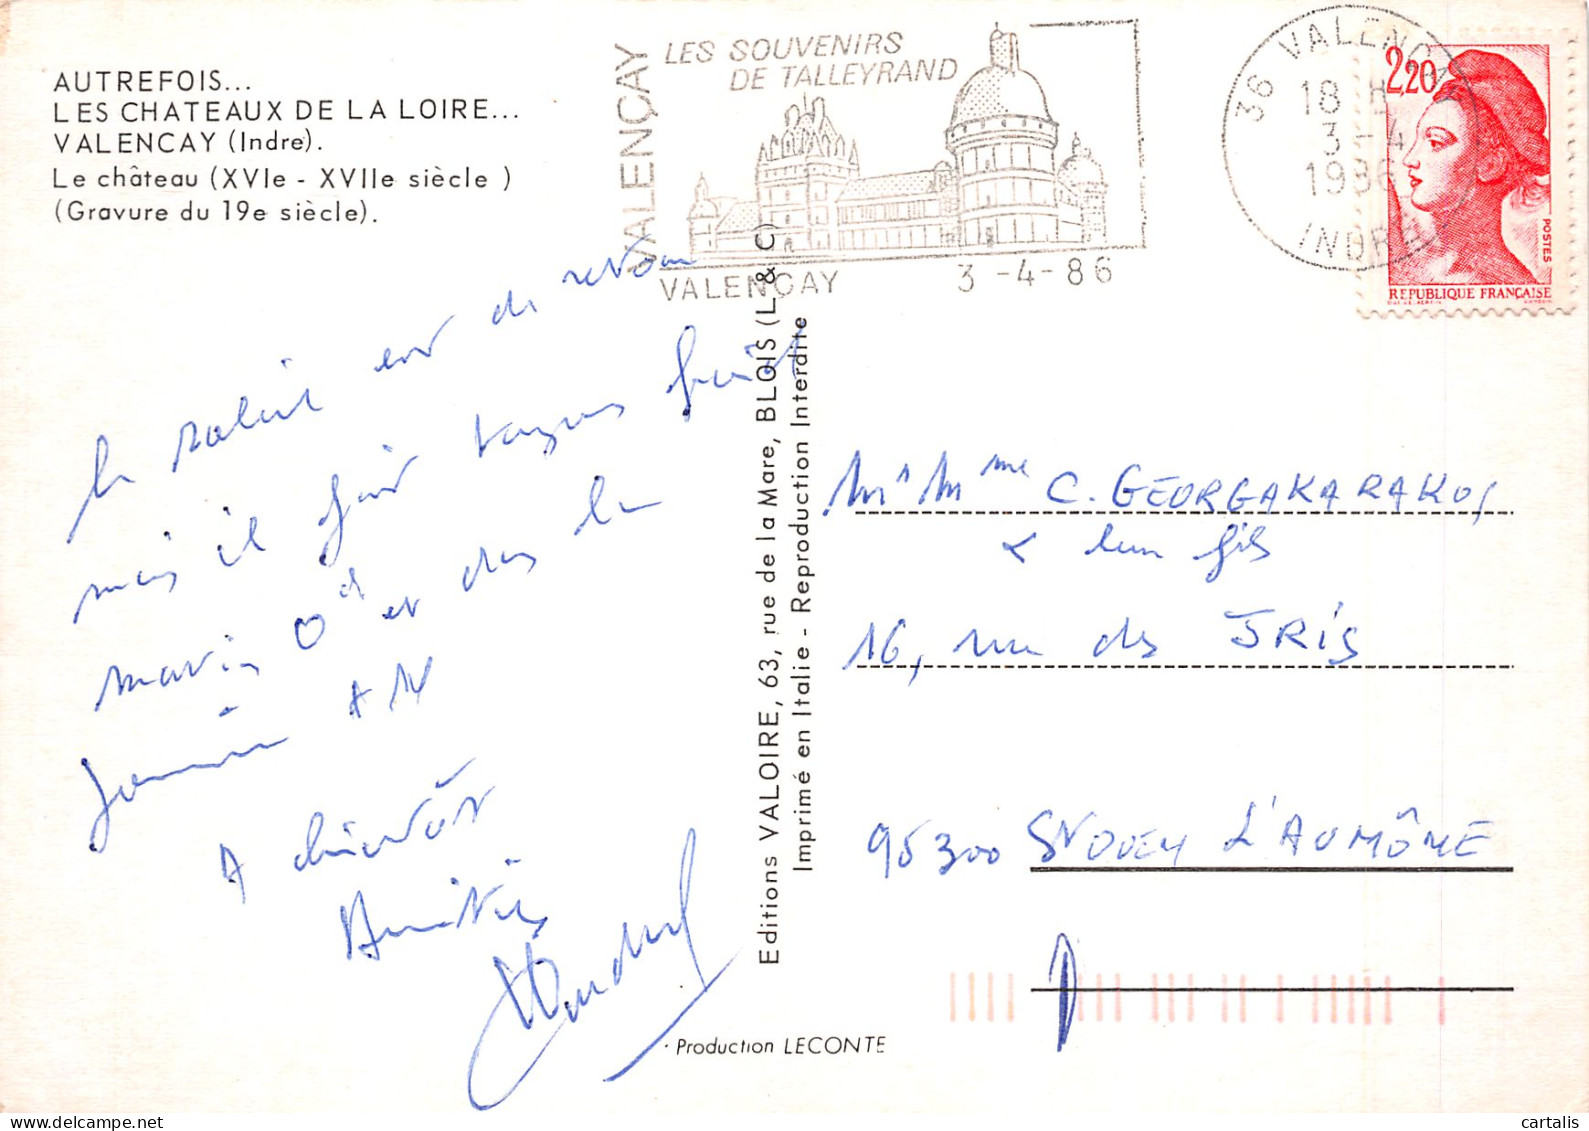 AUTREFOIS...
LES CHATEAUX DE LA LOIRE...
VALENCAY (Indre).
Le château (XVIe - XVIIe siècle )
(Gravure du 19e siècle).
VALENÇAY
LES SOUVENIRS
DE TALLEYRAND
VALENÇAY 3-4-86
36 VALENCAY
18 H
3-4
1986
INDRE
2,20
POSTES
REPUBLIQUE FRANÇAISE
le soleil est de retour
mais il fait toujours froid
et dans le
A bientôt
Amitiés
Editions VALOIRE, 63, rue de la Mare, BLOIS (L. & C)
Imprimé en Italie - Reproduction Interdite
Mr Mme C. GEORGAKARAKOS
& leur fils
16, rue des IRIS
95300 St OUEN L'AUMÔNE
Production LECONTE
cartalis